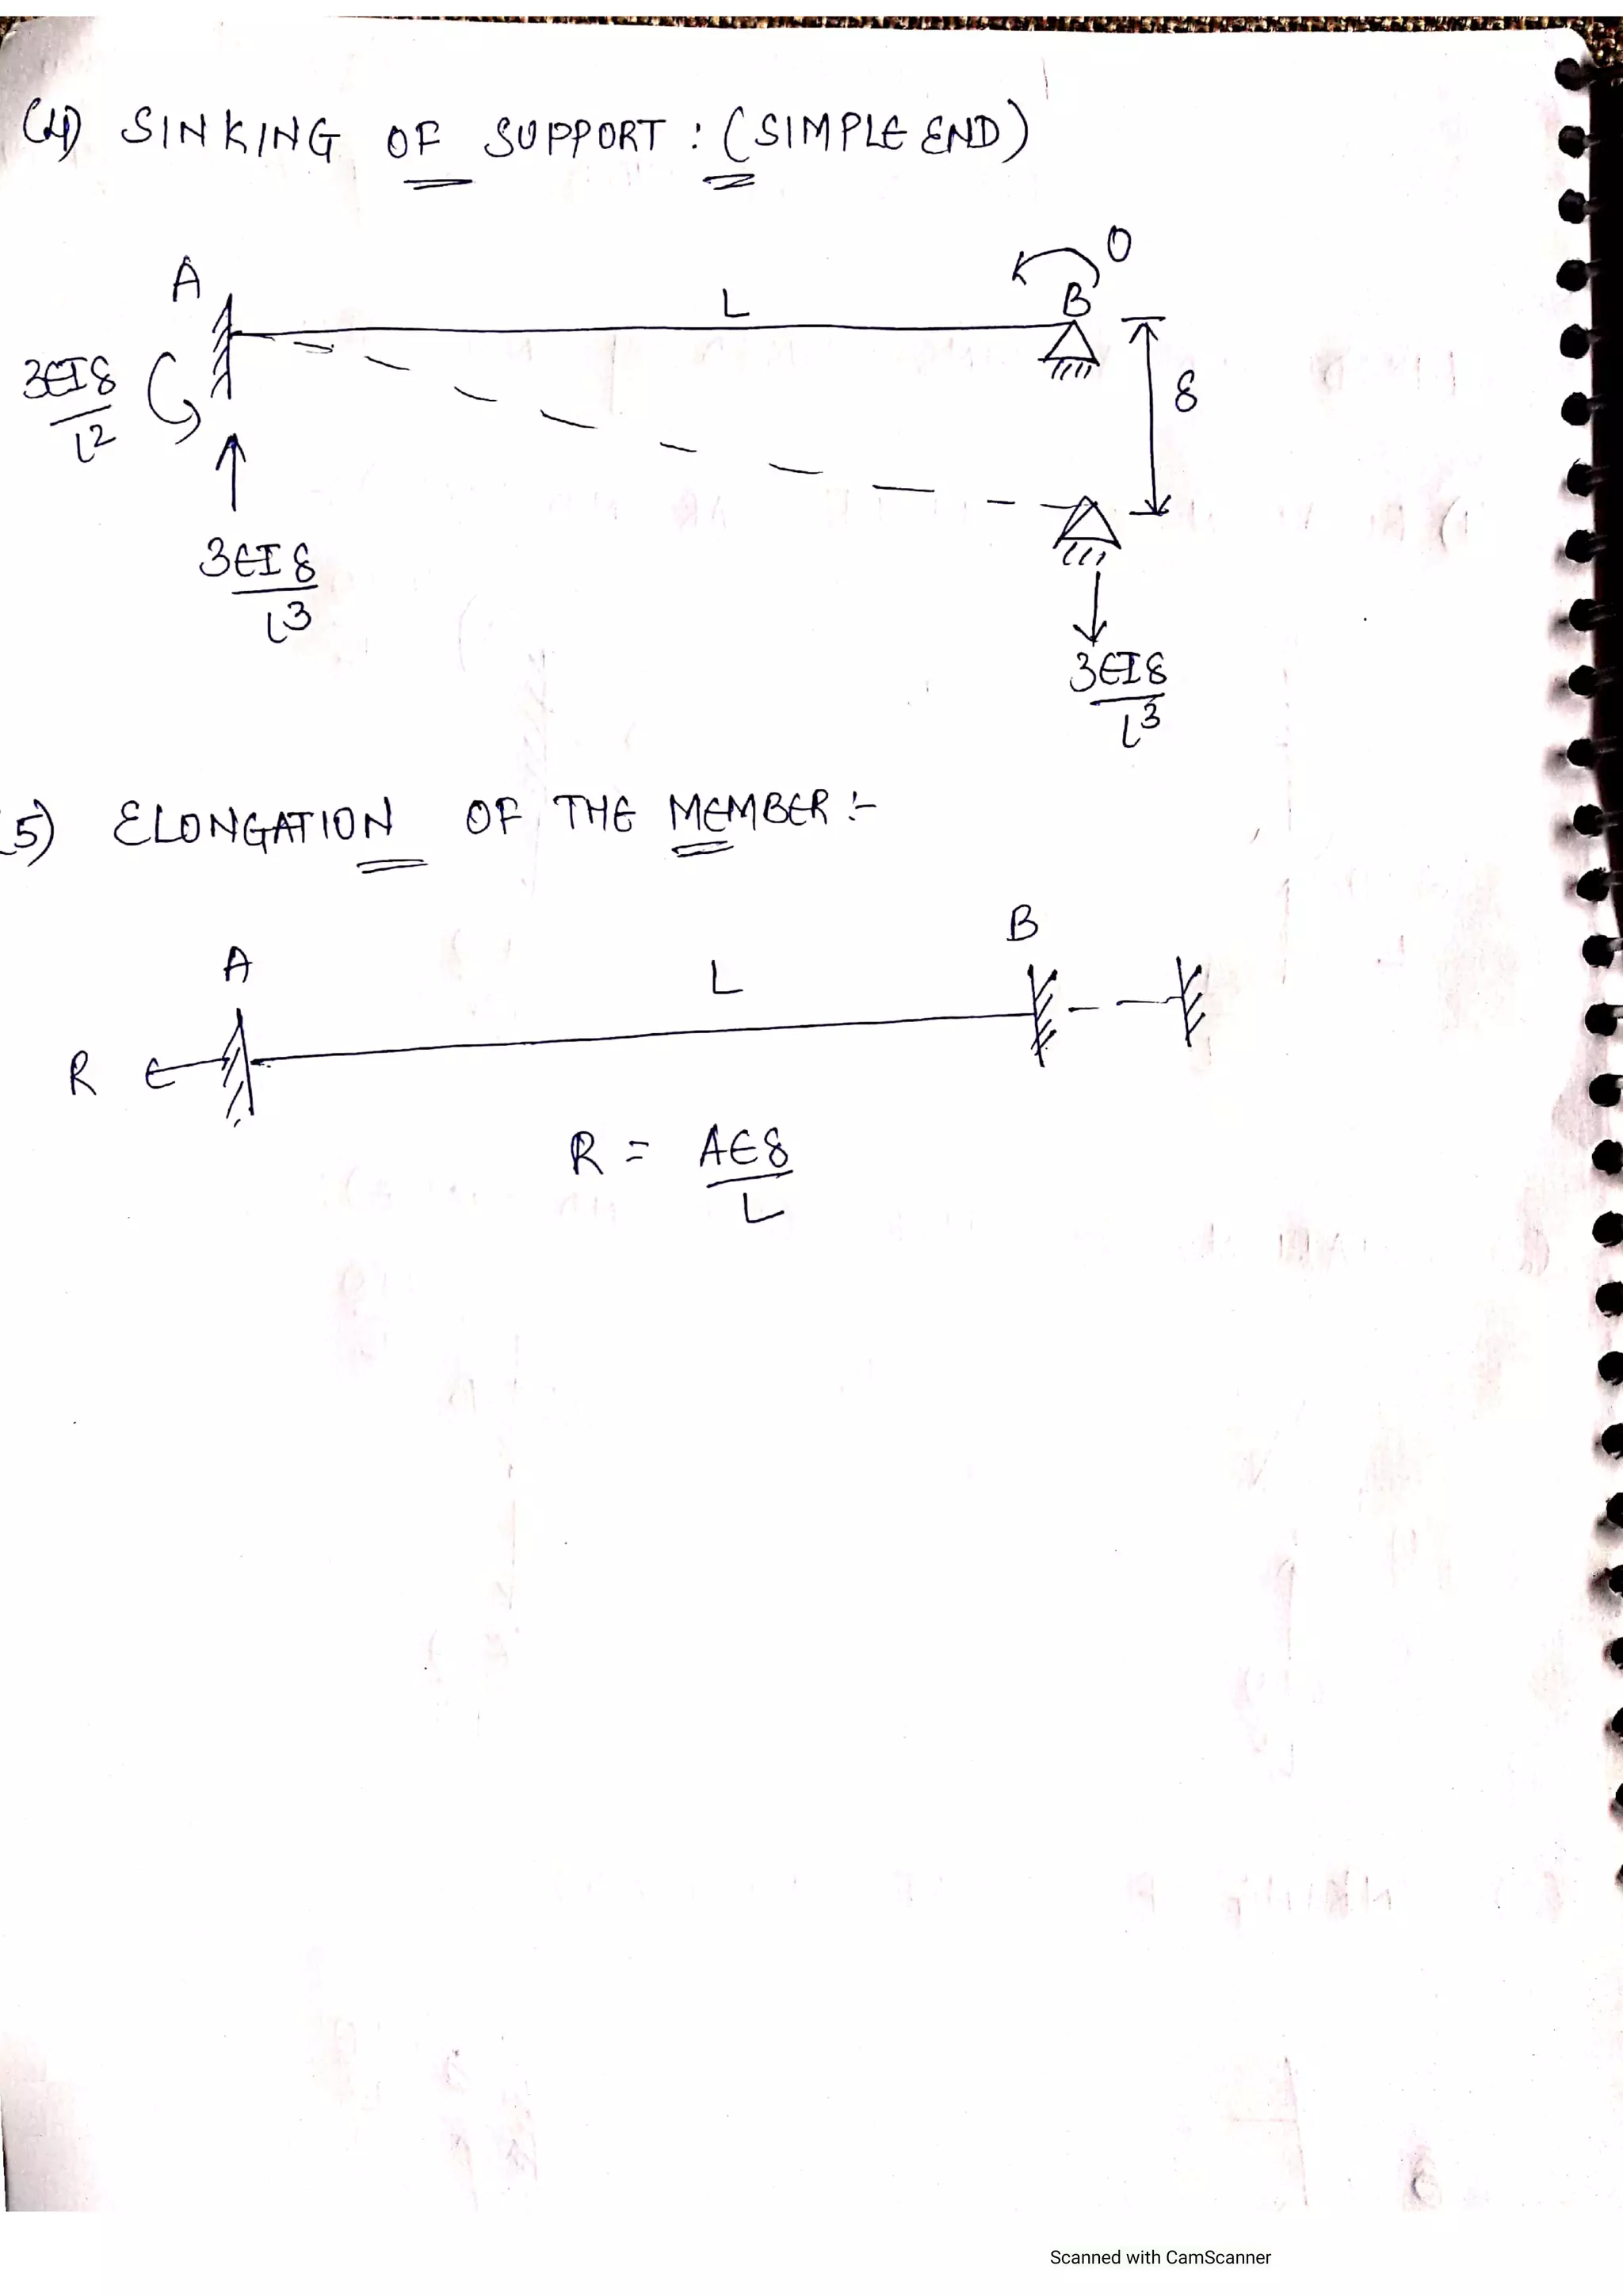 (4) SINKING OF SUPPORT : (SIMPLE END)
0
A
L
B
3EIδ
L2
δ
3EIδ
L3
3EIδ
L3
(5) ELONGATION OF THE MEMBER :-
B
A
L
R
R = AEδ
L
Scanned with CamScanner